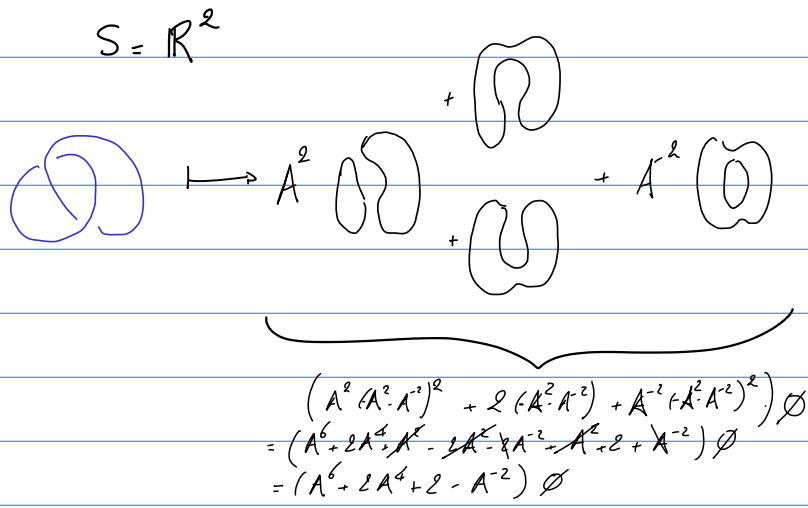 S = ℝ²
↦ A² + + + A⁻²
(A² (A²-A⁻²)² + 2 (-A²-A⁻²) + A⁻² (-A²-A⁻²)²) · ∅
= (A⁶ + 2A⁴ + A² - 2A² - 2A⁻² + A² + 2 + A⁻²) ∅
= (A⁶ + 2A⁴ + 2 - A⁻²) ∅